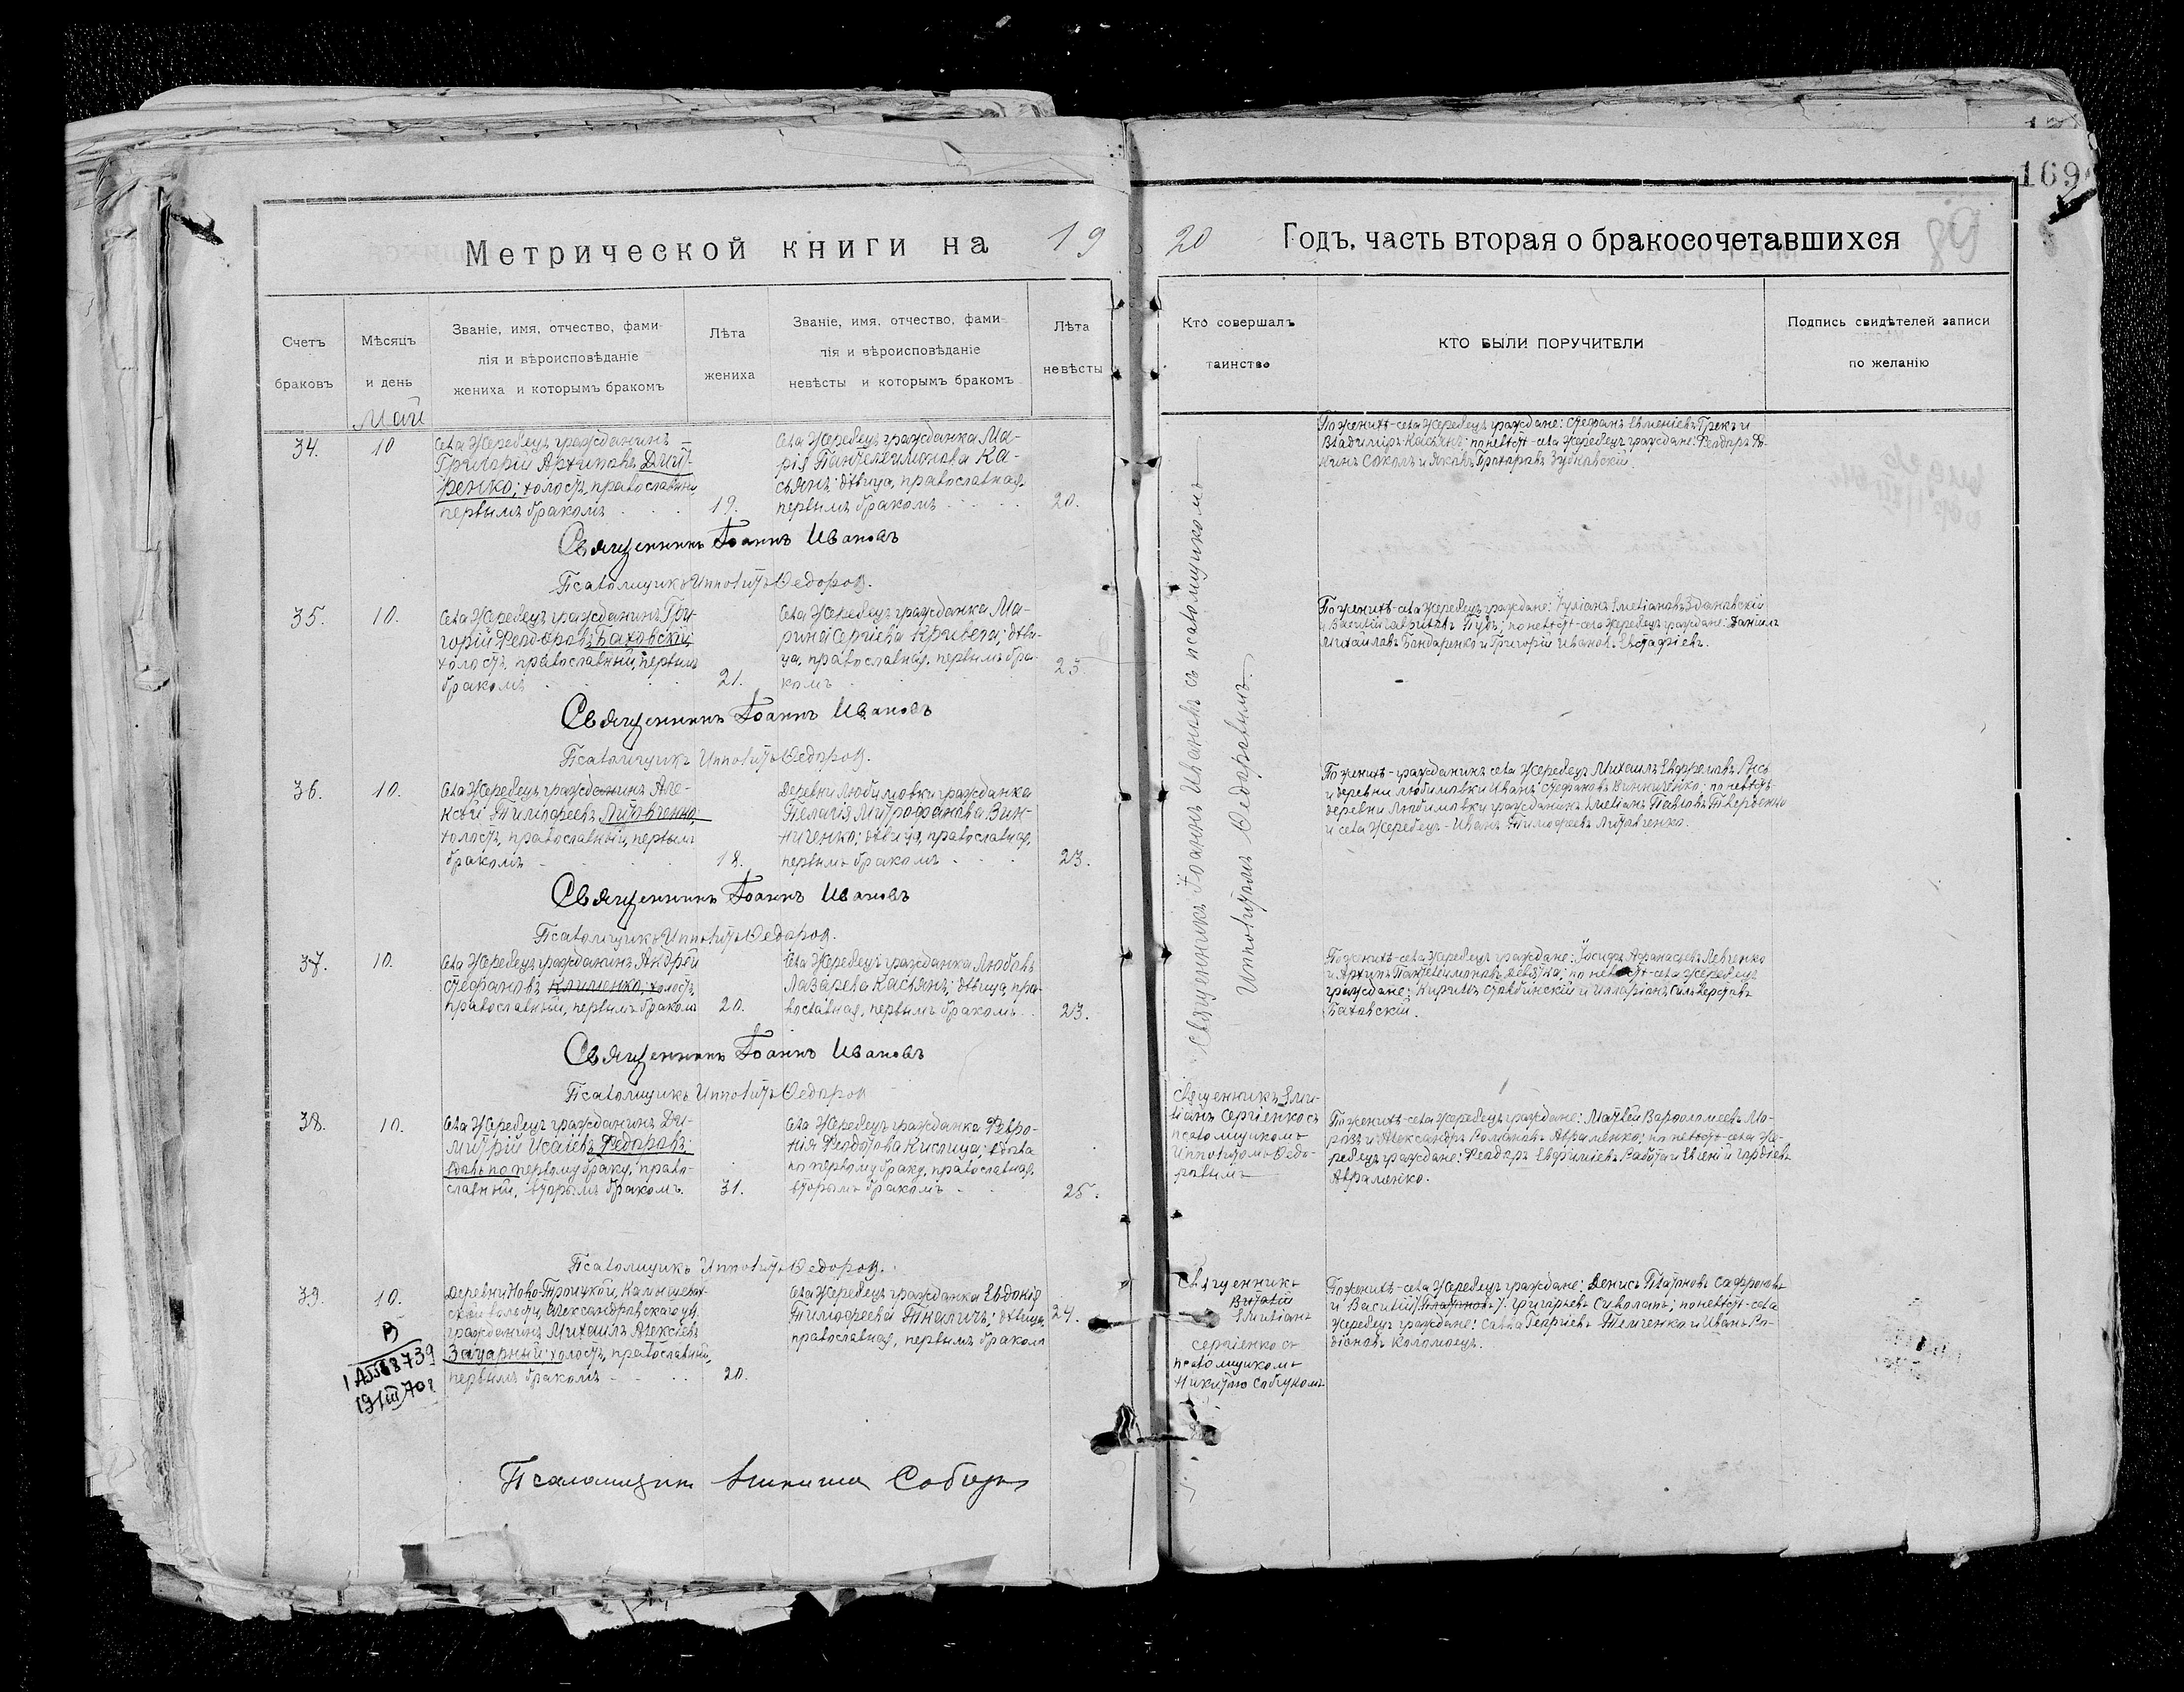 169
Метрической книги на 19
20 Годъ, часть вторая о бракосочетавшихся
Счетъ
браковъ
Мѣсяцъ
и день
Званіе, имя, отчество, фами-
лія и вѣроисповѣданіе
жениха и которымъ бракомъ
Лѣта
жениха
Званіе, имя, отчество, фами-
лія и вѣроисповѣданіе
невѣсты и которымъ бракомъ
Лѣта
невѣсты
Кто совершалъ
таинство
КТО БЫЛИ ПОРУЧИТЕЛИ
Подпись свидѣтелей записи
по желанію
Май
34.
10
Села Жеребецъ гражданинъ
Григорій Архиповъ Дмит-
ренко; холостъ, православный
первымъ бракомъ
19.
Села Жеребецъ гражданка Ма-
рія Пантелеимонова Ка-
сьянъ; дѣвица, православная,
первымъ бракомъ
20.
По женихѣ-села Жеребецъ граждане: Стефанъ Евменіевъ Грекъ и
Владиміръ Касьянъ; по невѣстѣ-села Жеребецъ граждане: Феодоръ
Соколъ и Яковъ Зубковскій.
Священникъ Іоаннъ Ивановъ
Псаломщикъ Ипполитъ Ѳедоровъ.
35.
10.
Села Жеребецъ гражданинъ Гри-
горій Феодоровъ Баховскій;
холостъ, православный, первымъ
бракомъ
21.
Села Жеребецъ гражданка Ма-
рина Сергіева Кривега; дѣви-
ца, православная, первымъ бра-
комъ
25
По женихѣ-села Жеребецъ граждане: Іуліанъ Емеліановъ Здановскій
и Василій Гавриловъ Пудъ; по невѣстѣ-села Жеребецъ граждане: Даніилъ
Михайловъ Бондаренко и Григорій Ивановъ Евстафіевъ.
Священникъ Іоаннъ Ивановъ
Псаломщикъ Ипполитъ Ѳедоровъ.
36.
10.
Села Жеребецъ гражданинъ Але-
ксѣй Тимофеевъ Литовченко,
холостъ, православный, первымъ
бракомъ
18.
Деревни Любимовки гражданка
Пелагія Митрофанова Вин-
ниченко; дѣвица, православная,
первымъ бракомъ
23.
По женихѣ-гражданинъ села Жеребецъ Михаилъ Евфремовъ Рясь
и деревни Любимовки Иванъ Стефановъ Винниченко; по невѣстѣ-
деревни Любимовки гражданинъ Емеліанъ Павловъ Тверденко
и села Жеребецъ-Иванъ Тимофеевъ Литовченко.
Священникъ Іоаннъ Ивановъ
Псаломщикъ Ипполитъ Ѳедоровъ.
Священникъ Іоаннъ Ивановъ съ псаломщикомъ
Ипполитомъ Ѳедоровымъ.
37.
10.
Села Жеребецъ гражданинъ Андрей
Стефановъ Клименко; холостъ,
православный, первымъ бракомъ
20.
Села Жеребецъ гражданка Любовь
Лазарева Касьянъ; дѣвица, пра-
вославная, первымъ бракомъ
23.
По женихѣ-села Жеребецъ граждане: Іосифъ Афанасіевъ Левченко
и Архипъ Пантелеимоновъ Девятка; по невѣстѣ-села Жеребецъ
граждане: Кириллъ Стовбинскій и Илларіонъ Сильверстовъ
Баховскій.
Священникъ Іоаннъ Ивановъ
Псаломщикъ Ипполитъ Ѳедоровъ
38.
10.
Села Жеребецъ гражданинъ Ди-
митрій Исаіевъ Федоровъ;
вдовъ по первому браку, право-
славный, вторымъ бракомъ.
31.
Села Жеребецъ гражданка Февро-
нія Феодотова Кислица; вдова
по первому браку, православная,
вторымъ бракомъ
25.
Священникъ Еми-
ліанъ Сергіенко съ
псаломщикомъ
Ипполитомъ Ѳедо-
ровымъ
По женихѣ-села Жеребецъ граждане: Матвѣй Варфоломеевъ Мо-
розъ и Александръ Романовъ Авраменко; по невѣстѣ-села Же-
ребецъ граждане: Феодоръ Евфиміевъ Работа и Евгеній Гордіевъ
Авраменко.
Псаломщикъ Ипполитъ Ѳедоровъ.
39.
10.
Деревни Ново-Троицкой, Камышеват-
ской волости, Александровскаго уѣз.
гражданинъ Михаилъ Алексіевъ
Зацарный; холостъ, православный,
первымъ бракомъ
20.
Села Жеребецъ гражданка Евдокія
Тимофеева Тналичъ; дѣвица,
православная, первымъ бракомъ
24.
Священникъ
Виталій
Емиліанъ
Сергіенко съ
псаломщикомъ
Никитою Собуномъ
По женихѣ-села Жеребецъ граждане: Денисъ Платоновъ Сафроновъ
и Василій /Платоновъ/ Григорьевъ Сиволапъ; по невѣстѣ-села
Жеребецъ граждане: Савва Георгіевъ Темченко и Иванъ Ро-
діоновъ Коломоецъ.
8739
19/III 70г
Псаломщикъ Никита Собунъ